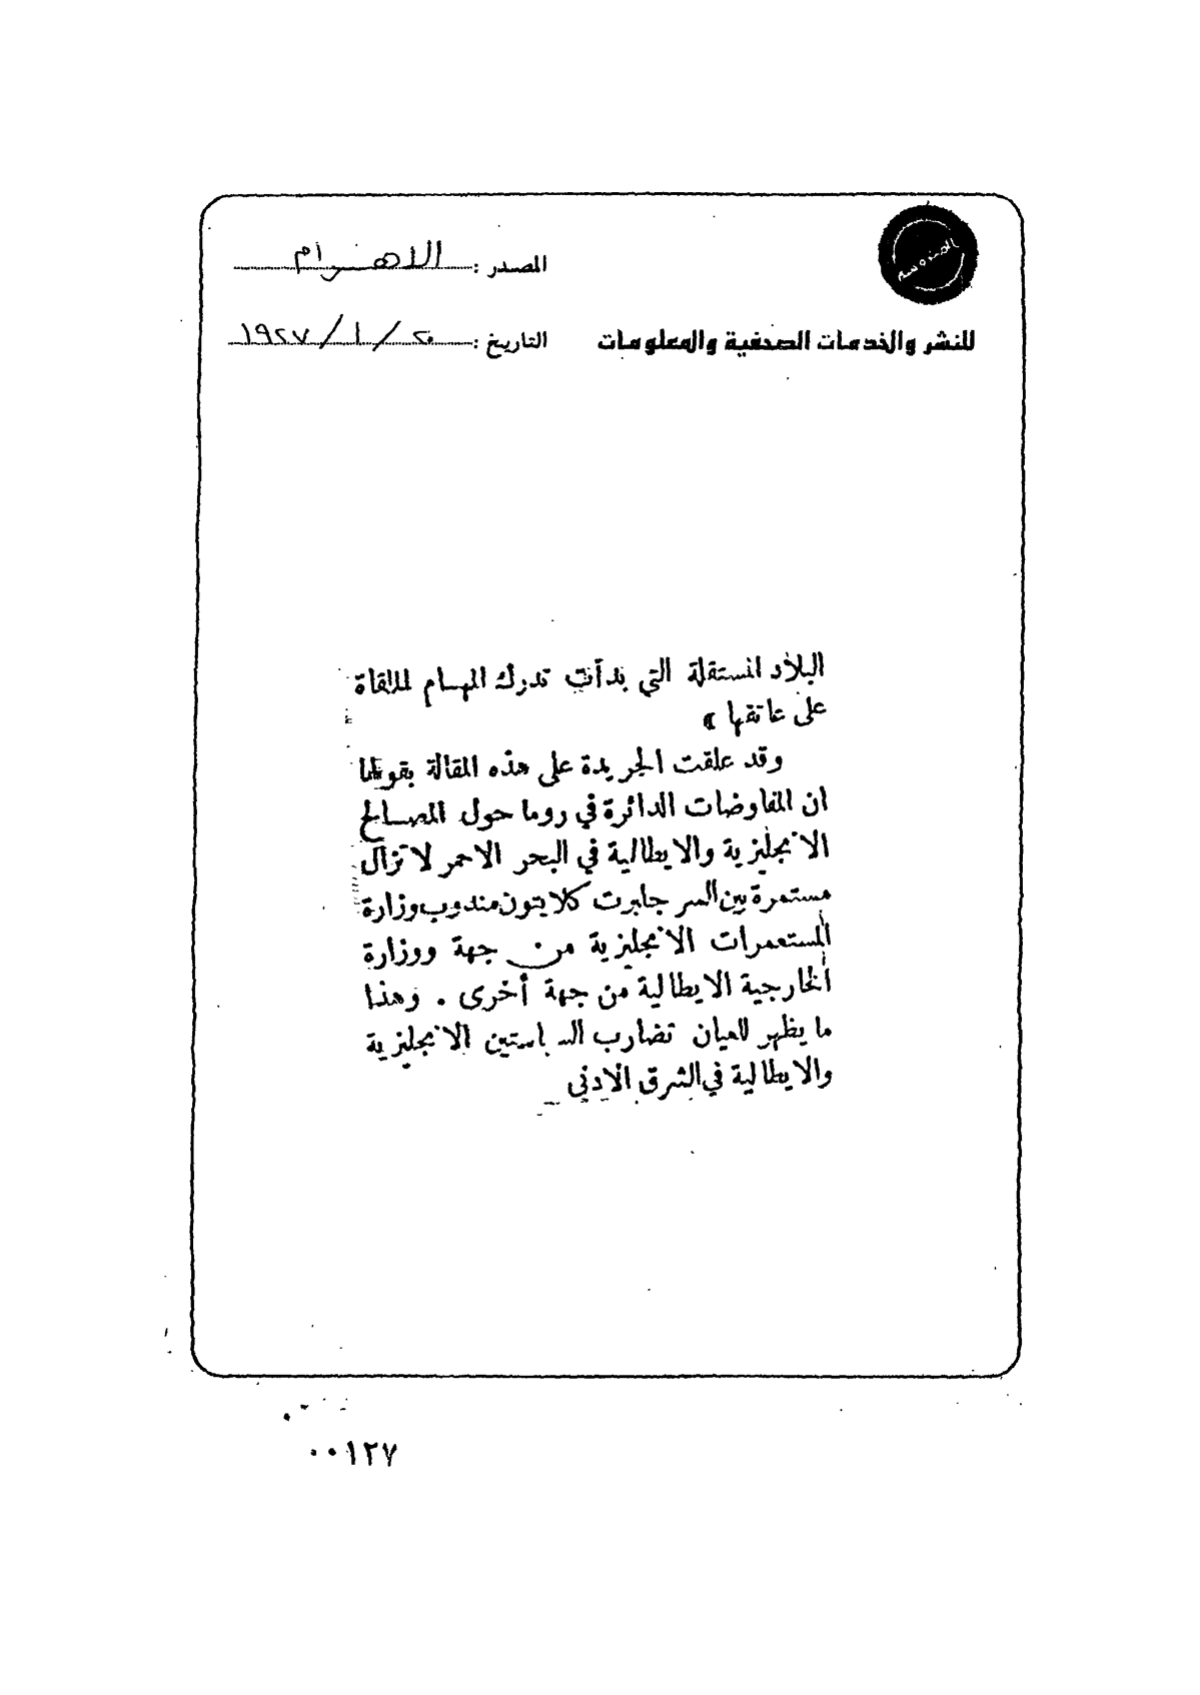 المحروسة
المصدر : الاهرام
للنشر والخدمات الصحفية والمعلومات
التاريخ : ٢٠ / ١ / ١٩٢٧
البلاد المستقلة التي بدأت تدرك المهام الملقاة
على عاتقها »
وقد علقت الجريدة على هذه المقالة بقولها
ان المفاوضات الدائرة في روما حول المصالح
الانجليزية والايطالية في البحر الاحمر لا تزال
مستمرة بين السر جلبرت كلايتون مندوب وزارة
المستعمرات الانجليزية من جهة ووزارة
الخارجية الايطالية من جهة أخرى . وهذا
ما يظهر للعيان تضارب السياستين الانجليزية
والايطالية في الشرق الادنى
٠٠١٢٧